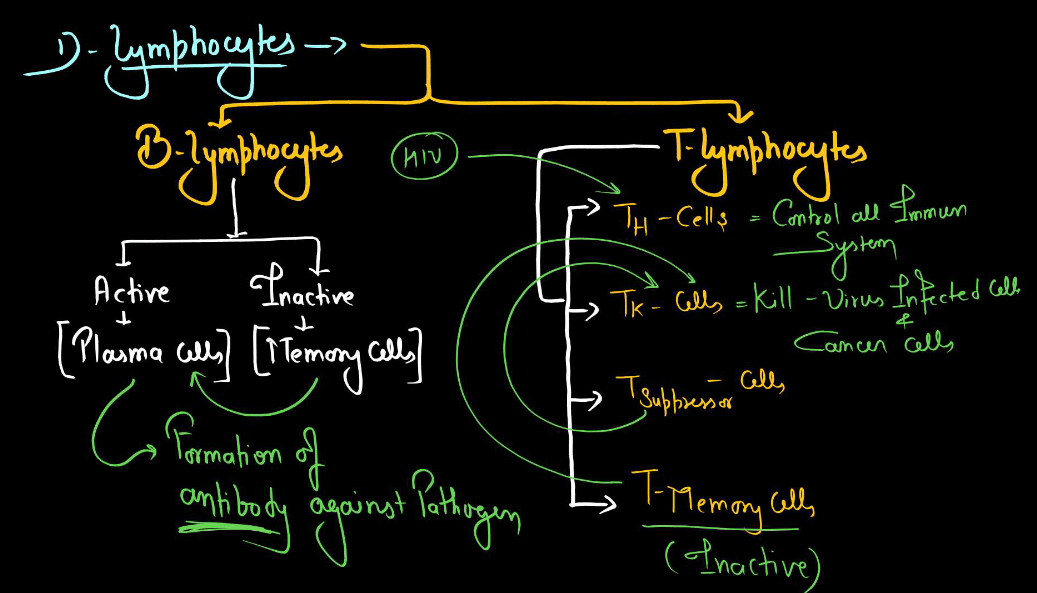 1)- Lymphocytes →
B-lymphocytes
HIV
T-lymphocytes
TH - Cells = Control all Immun
System
Active
Inactive
[Plasma cells]
[Memory cells]
TK - Cells = Kill - Virus Infected cells
&
Cancer cells
TSuppressor - Cells
Formation of
antibody against Pathogen
T-Memory cells
(Inactive)